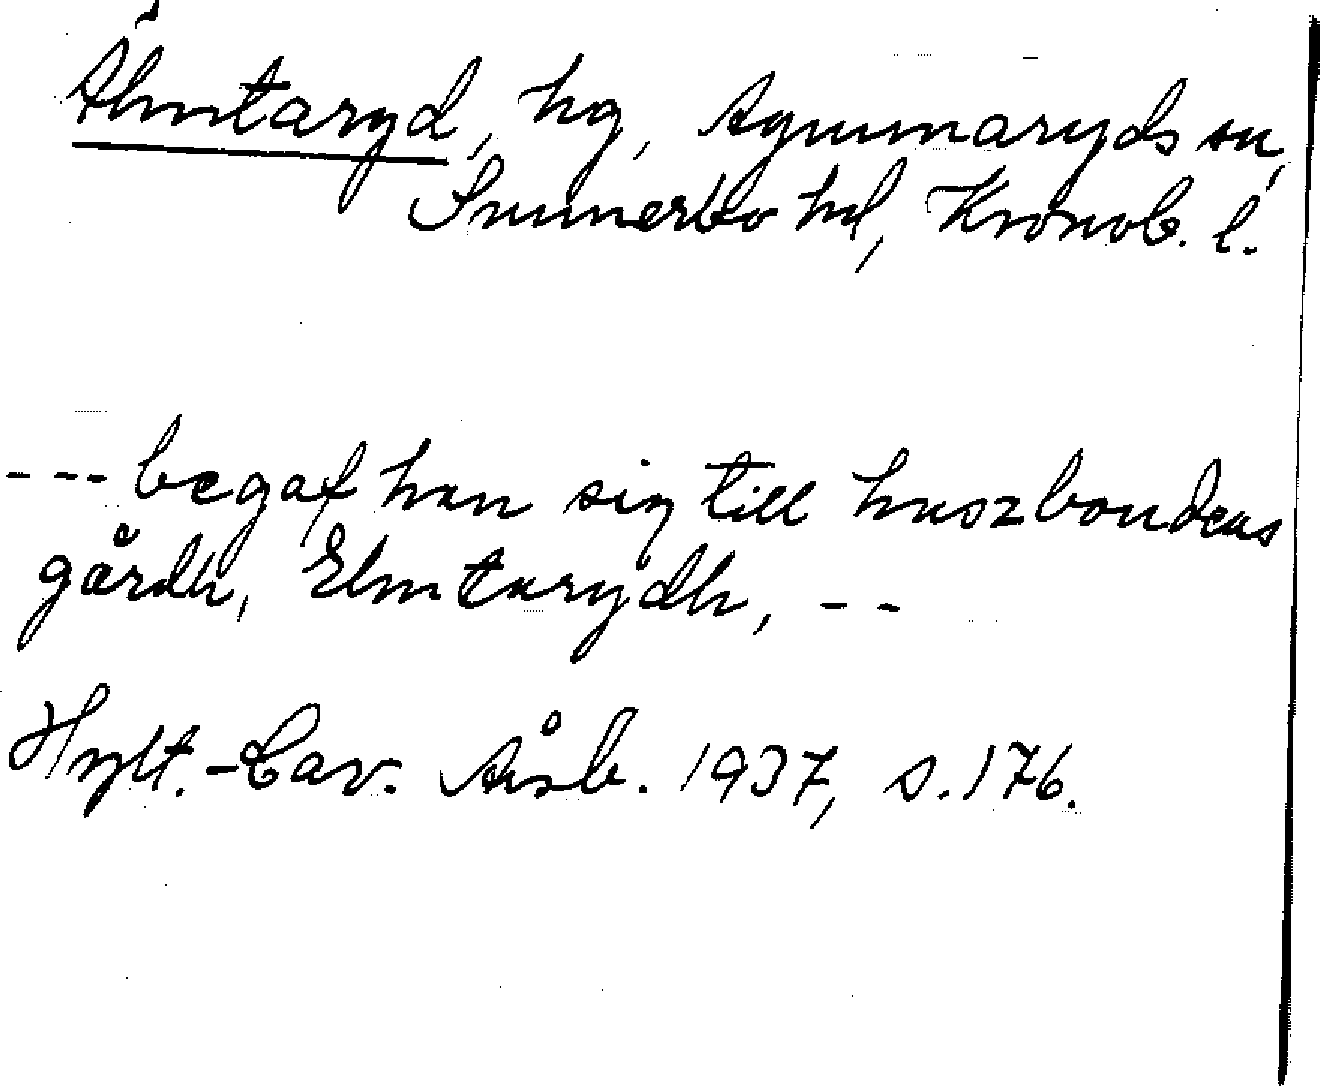 Älmtaryd, hg, Agunnaryds sn,
Sunnerbo hd, Kronob. l.
--- begaf han sig till huszbondens
gårdh, Elmtarydh, --
Hylt.-Cav. Årsb. 1937, s. 176.